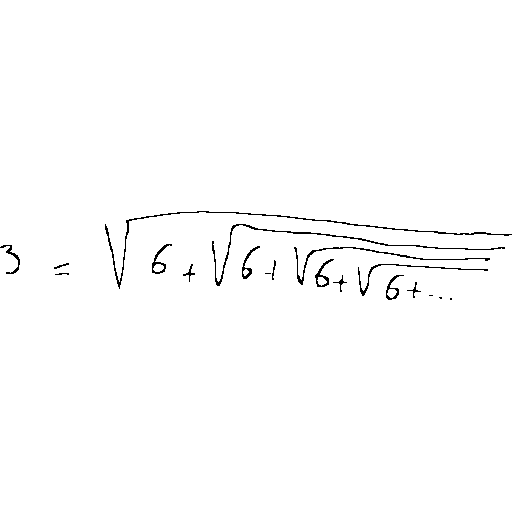 3 = √(6 + √(6 + √(6 + √(6 + ...